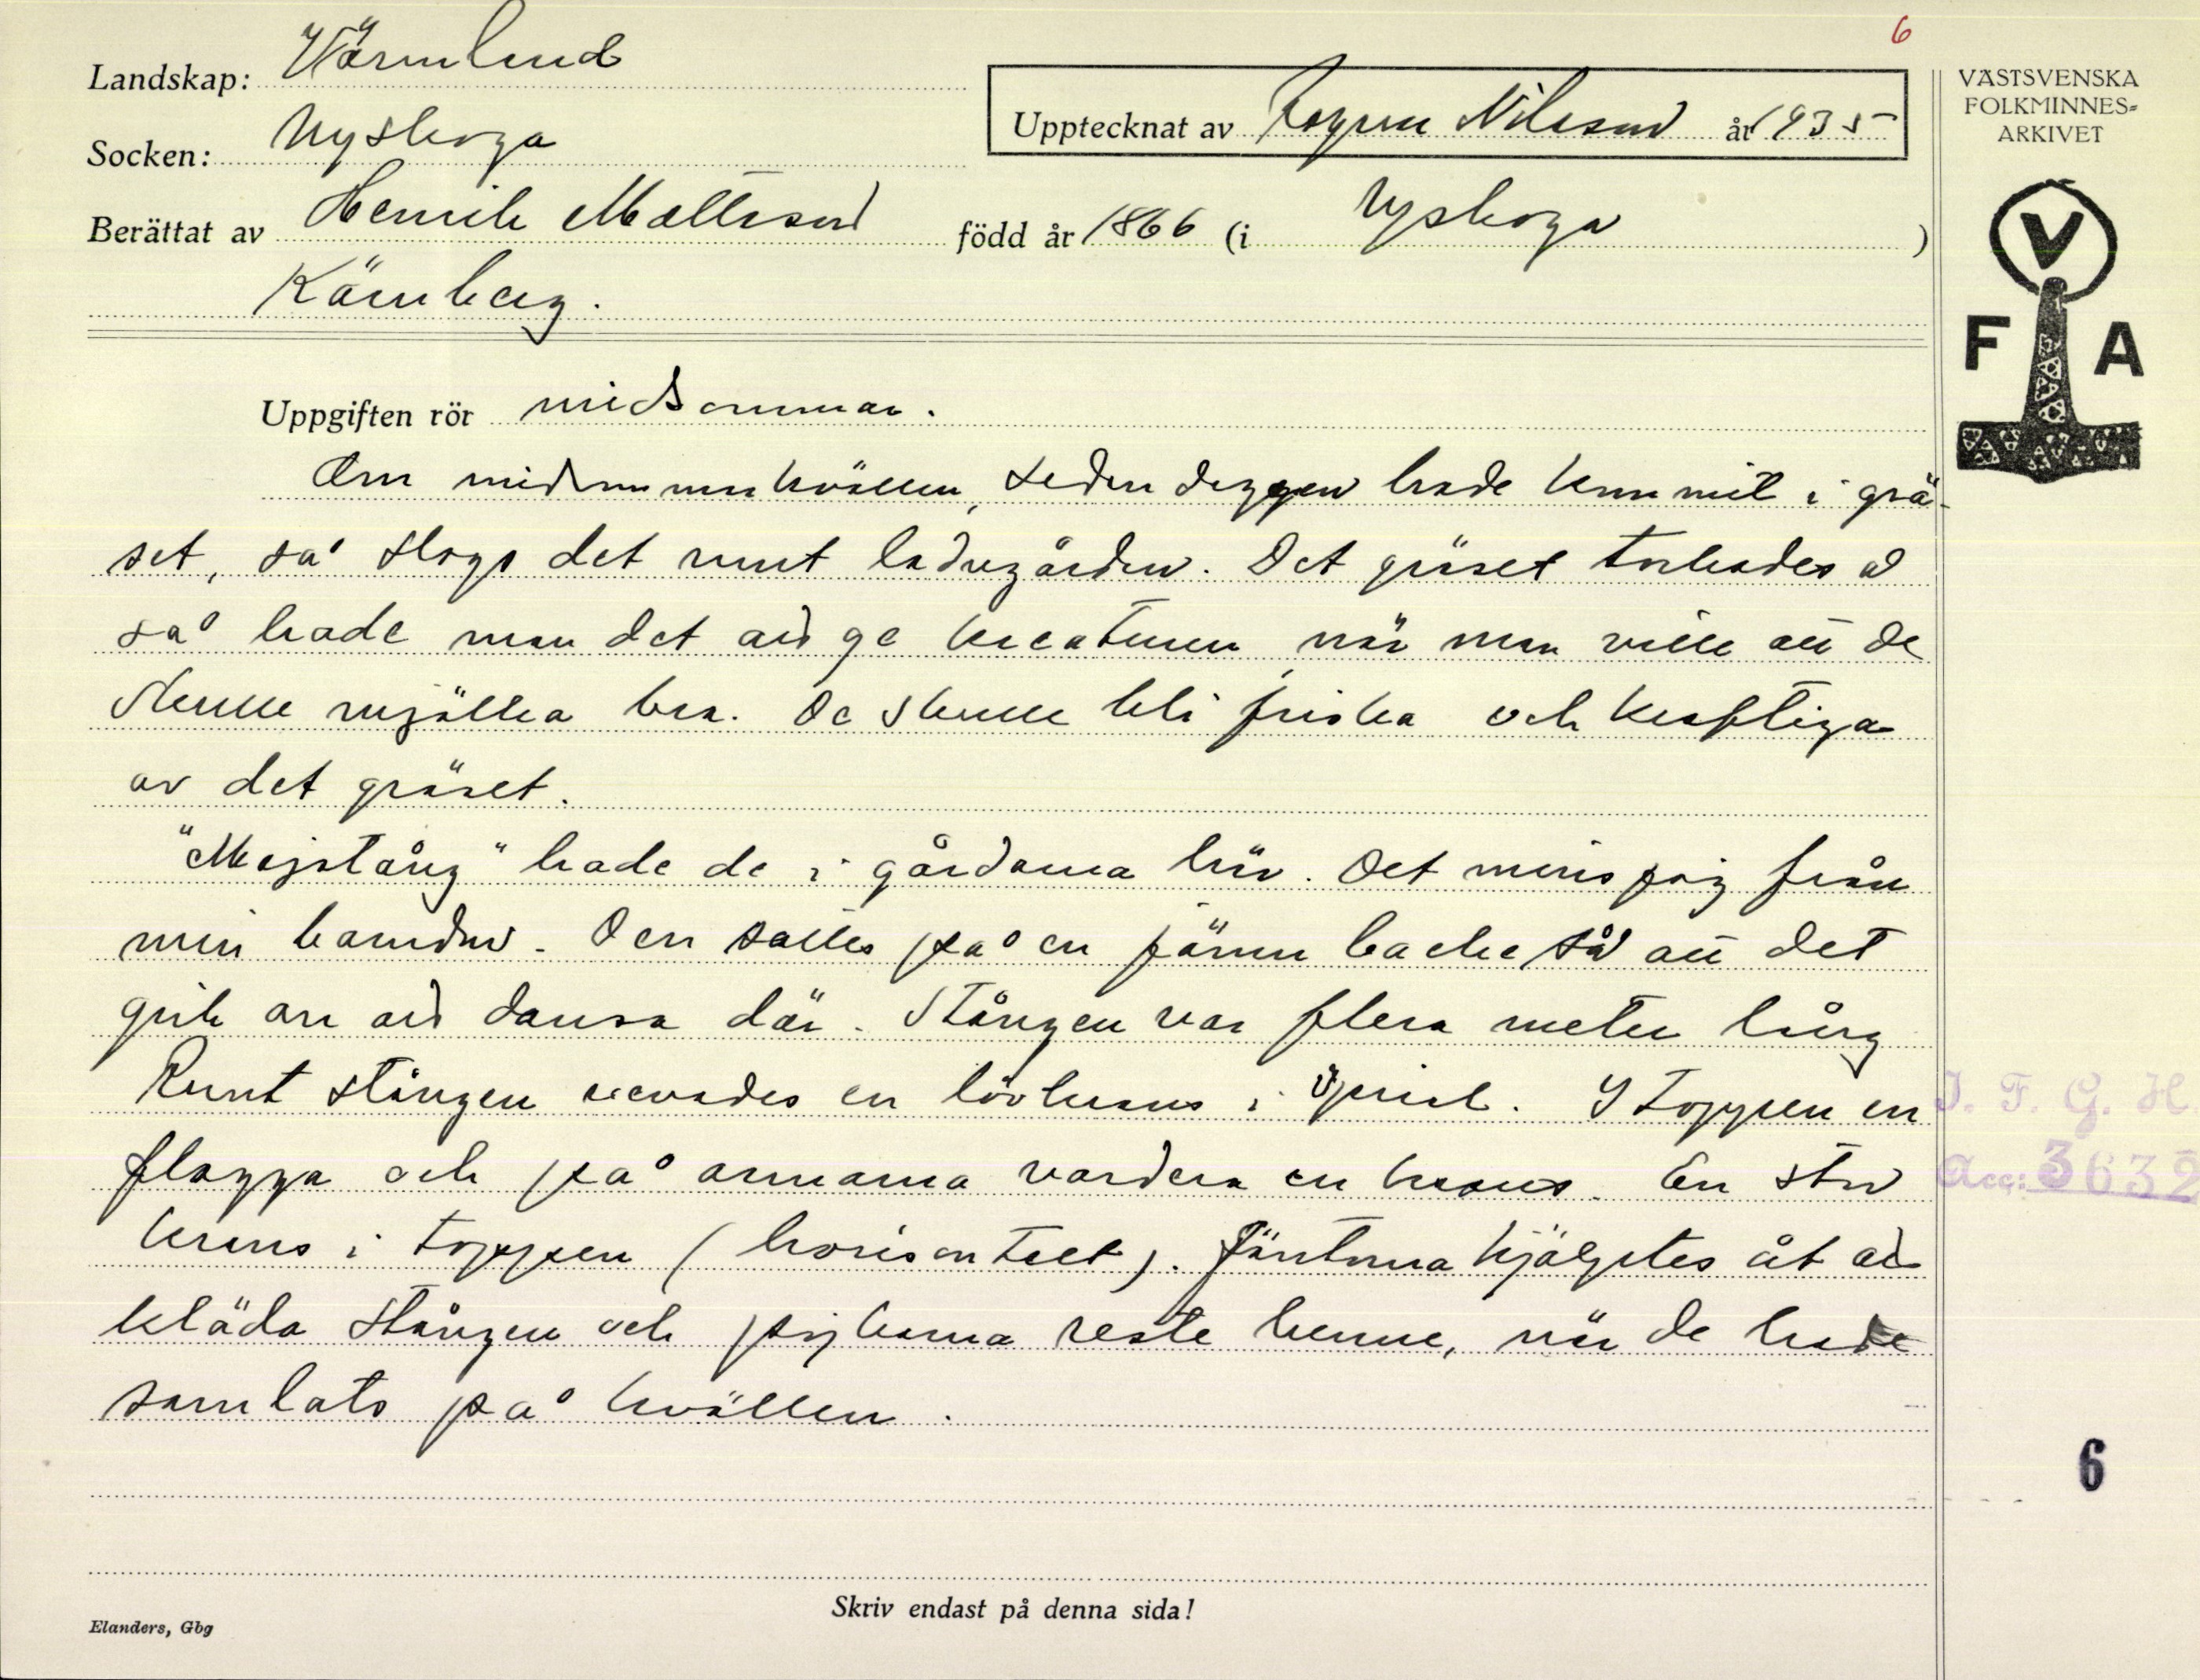 6
Landskap: Värmland
Socken: Nyskoga
Upptecknat av Ragnar Nilsson år 1935
VÄSTSVENSKA
FOLKMINNES=
ARKIVET
Berättat av Henrik Mattsson född år 1866 (i Nyskoga )
Kärnberg.
V
F A
Uppgiften rör midsommar.
Om midsommarkvällen, sedan daggen hade kommit i grä-
set, så slogs det runt ladugården. Det gräset torkades o
så hade man det att ge kreaturen, när man ville att de
skulle mjölka bra. De skulle bli friska och kraftiga
av det gräset.
"Majstång" hade de i gårdarna här. Det minns jag från
min barndom. Den sattes på en jämn backe så att det
gick an att dansa där. Stången var flera meter lång
Runt stången vevades en lövkrans i spiral. I toppen en
flagga och på armarna vardera en krans. En stor
krans i toppen (horisontell). Jäntorna hjälptes åt att
kläda stången och pojkarna reste henne, när de hade
samlats på kvällen.
I. F. G. H.
Acc: 3632
6
Skriv endast på denna sida!
Elanders, Gbg